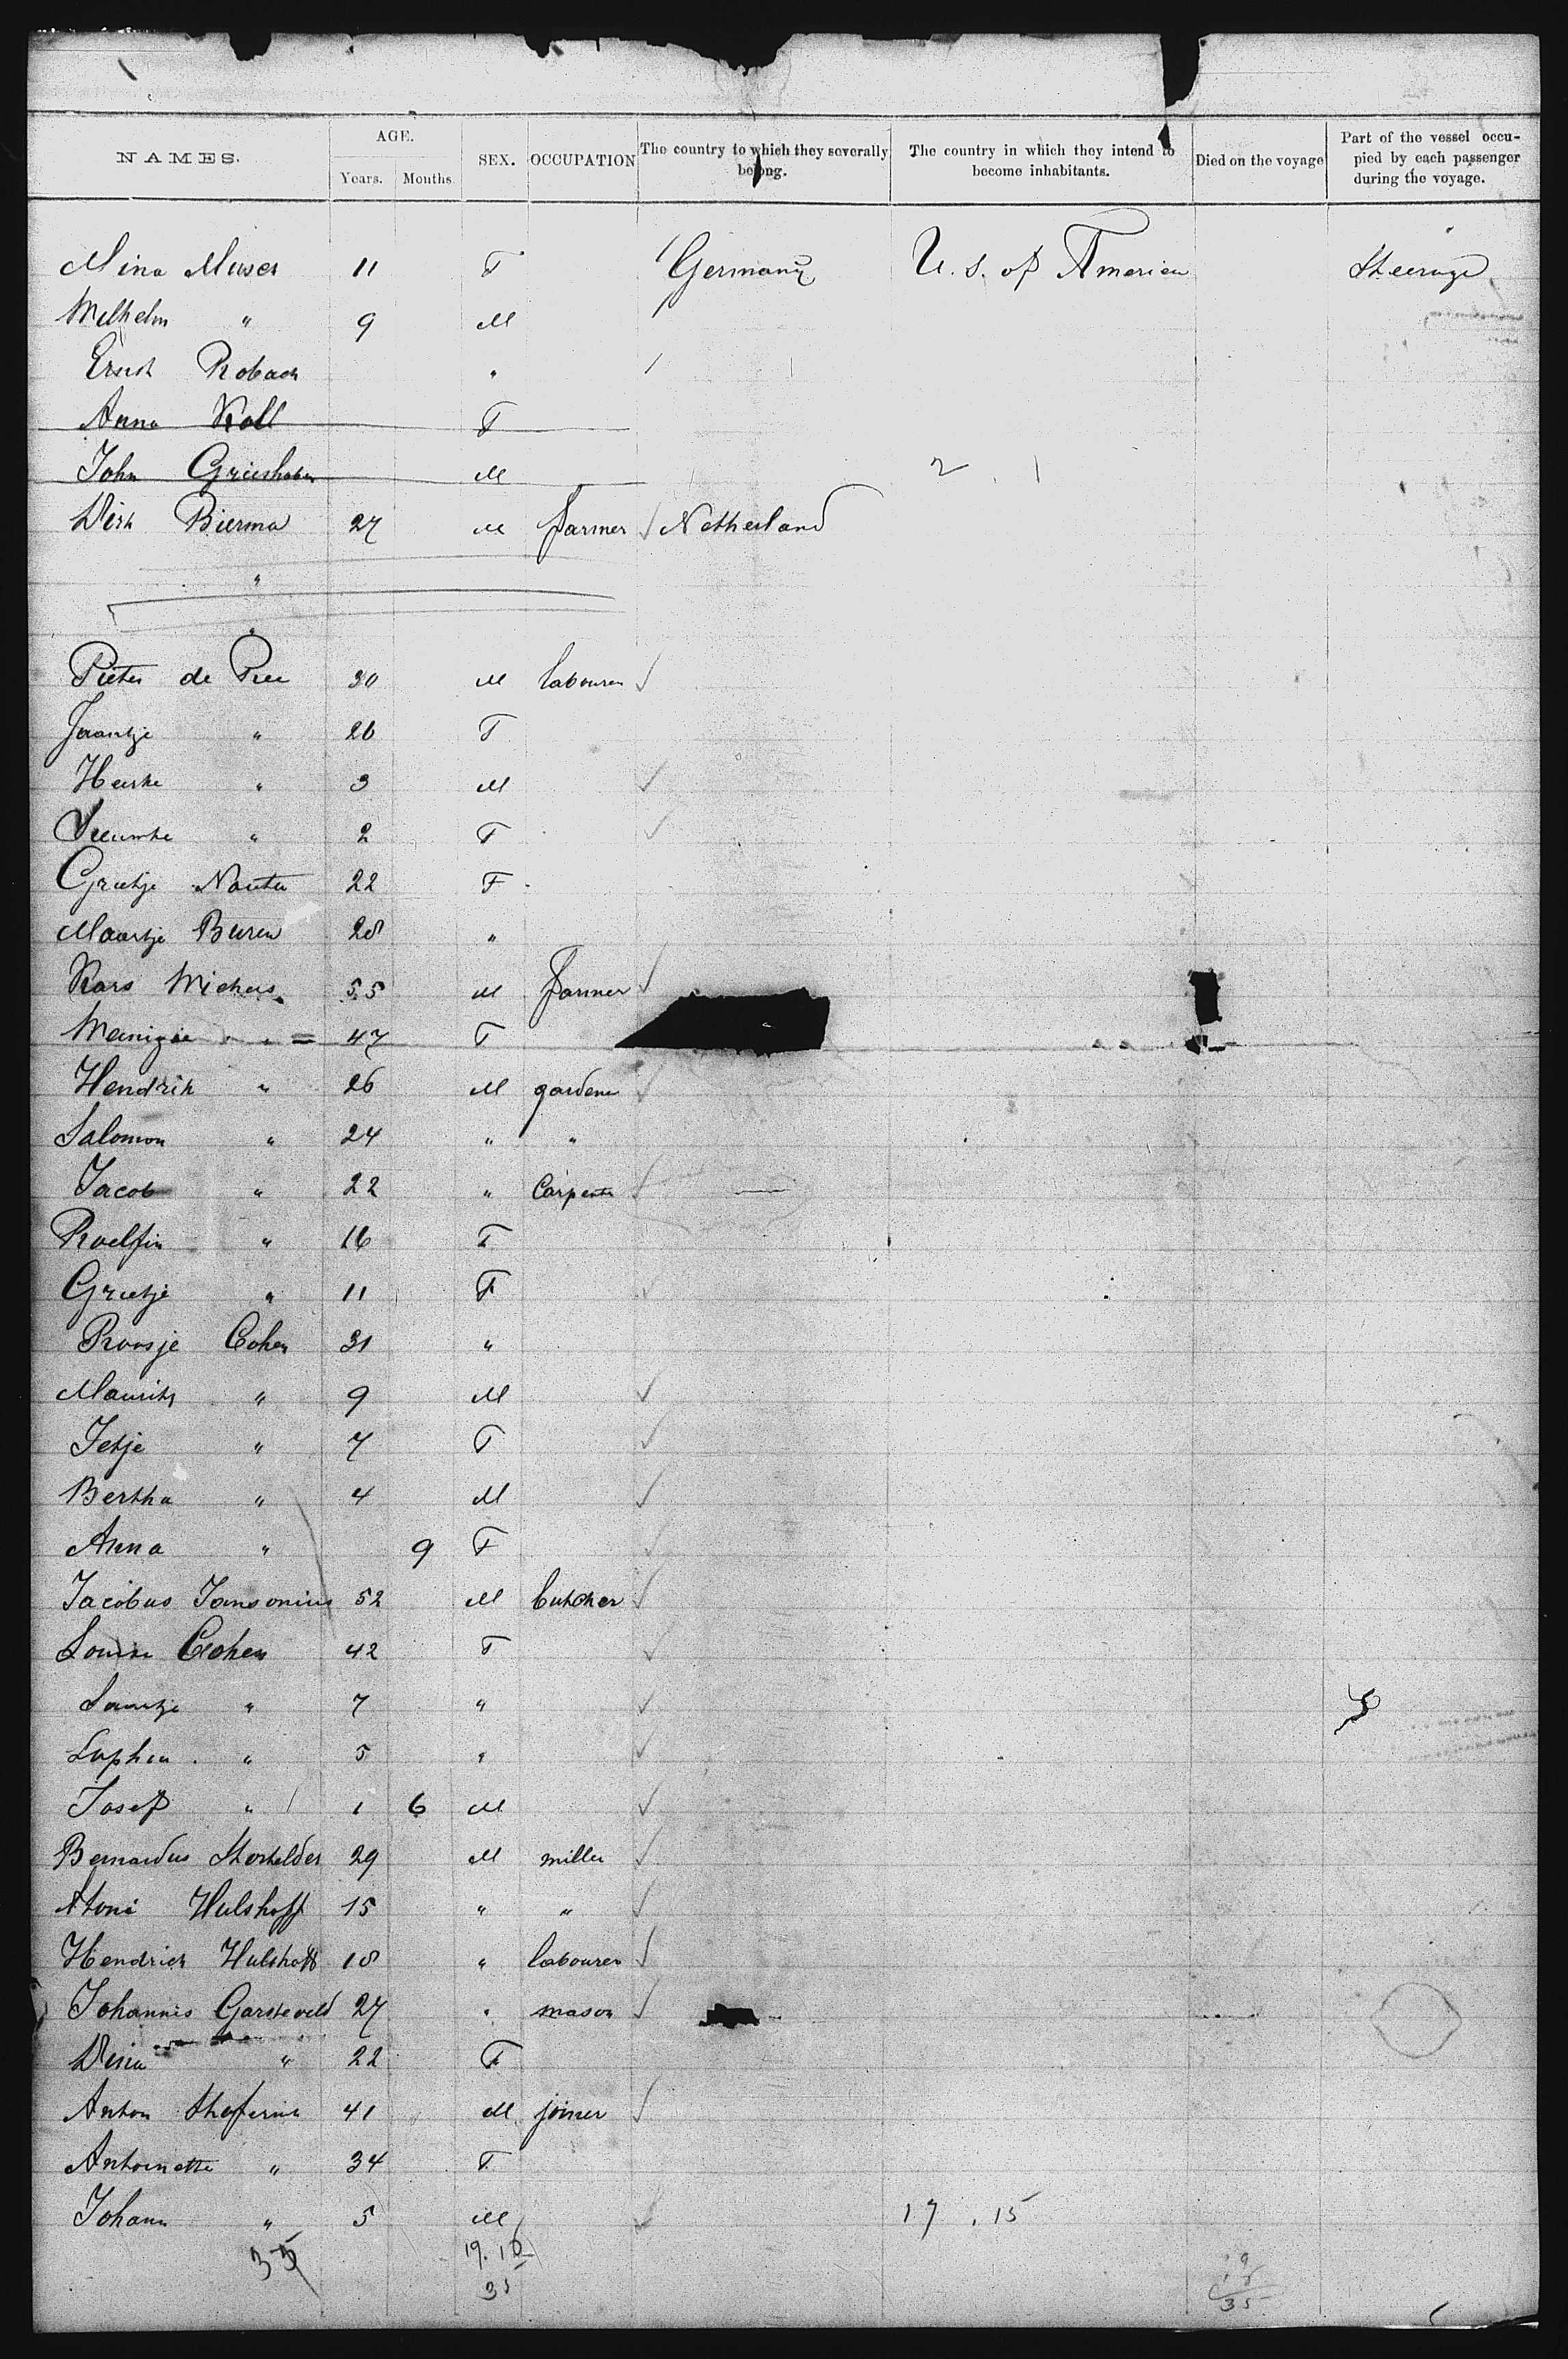 NAMES. AGE. SEX. OCCUPATION The country to which they severally belong. The country in which they intend to become inhabitants. Died on the voyage Part of the vessel occupied by each passenger during the voyage.
Years. Months
Mina Muser 11 F Germany U. S. of America Steerage
Wilhelm " 9 M
Ernst Robach "
Anna Koll F
John Grieshaber M 2 . 1
Dirk Bierma 27 M farmer Netherland
"
"
Pieter de Pree 30 M labourer
Jaantje " 26 F
" 3 M
" 2 F
Grietje Nauta 22 F
Maartje Buren 28 "
Kars Wichers 55 M farmer
" 47 F
Hendrik " 26 M gardener
Salomon " 24 " "
Jacob " 22 " Carpenter
Roelfin " 16 F
Grietje " 11 F
Roosje Cohen 31 "
Maurits " 9 M
Jetje " 7 F
Bertha " 4 M
Anna " 9 F
Jacobus Jansonius 52 M butcher
Louise Cohen 42 F
Saartje " 7 "
Sophia " 5 "
Josef " 1 6 M
Bernardus 29 M miller
Hulshoff 15 " "
Hendrick Hulshoff 18 " labourer
Johannis Garsteveld 27 " mason
Dina " 22 F
Anton 41 M joiner
Antoinette " 34 F
Johann " 5 M 17 . 15
35 19. 16
35
35